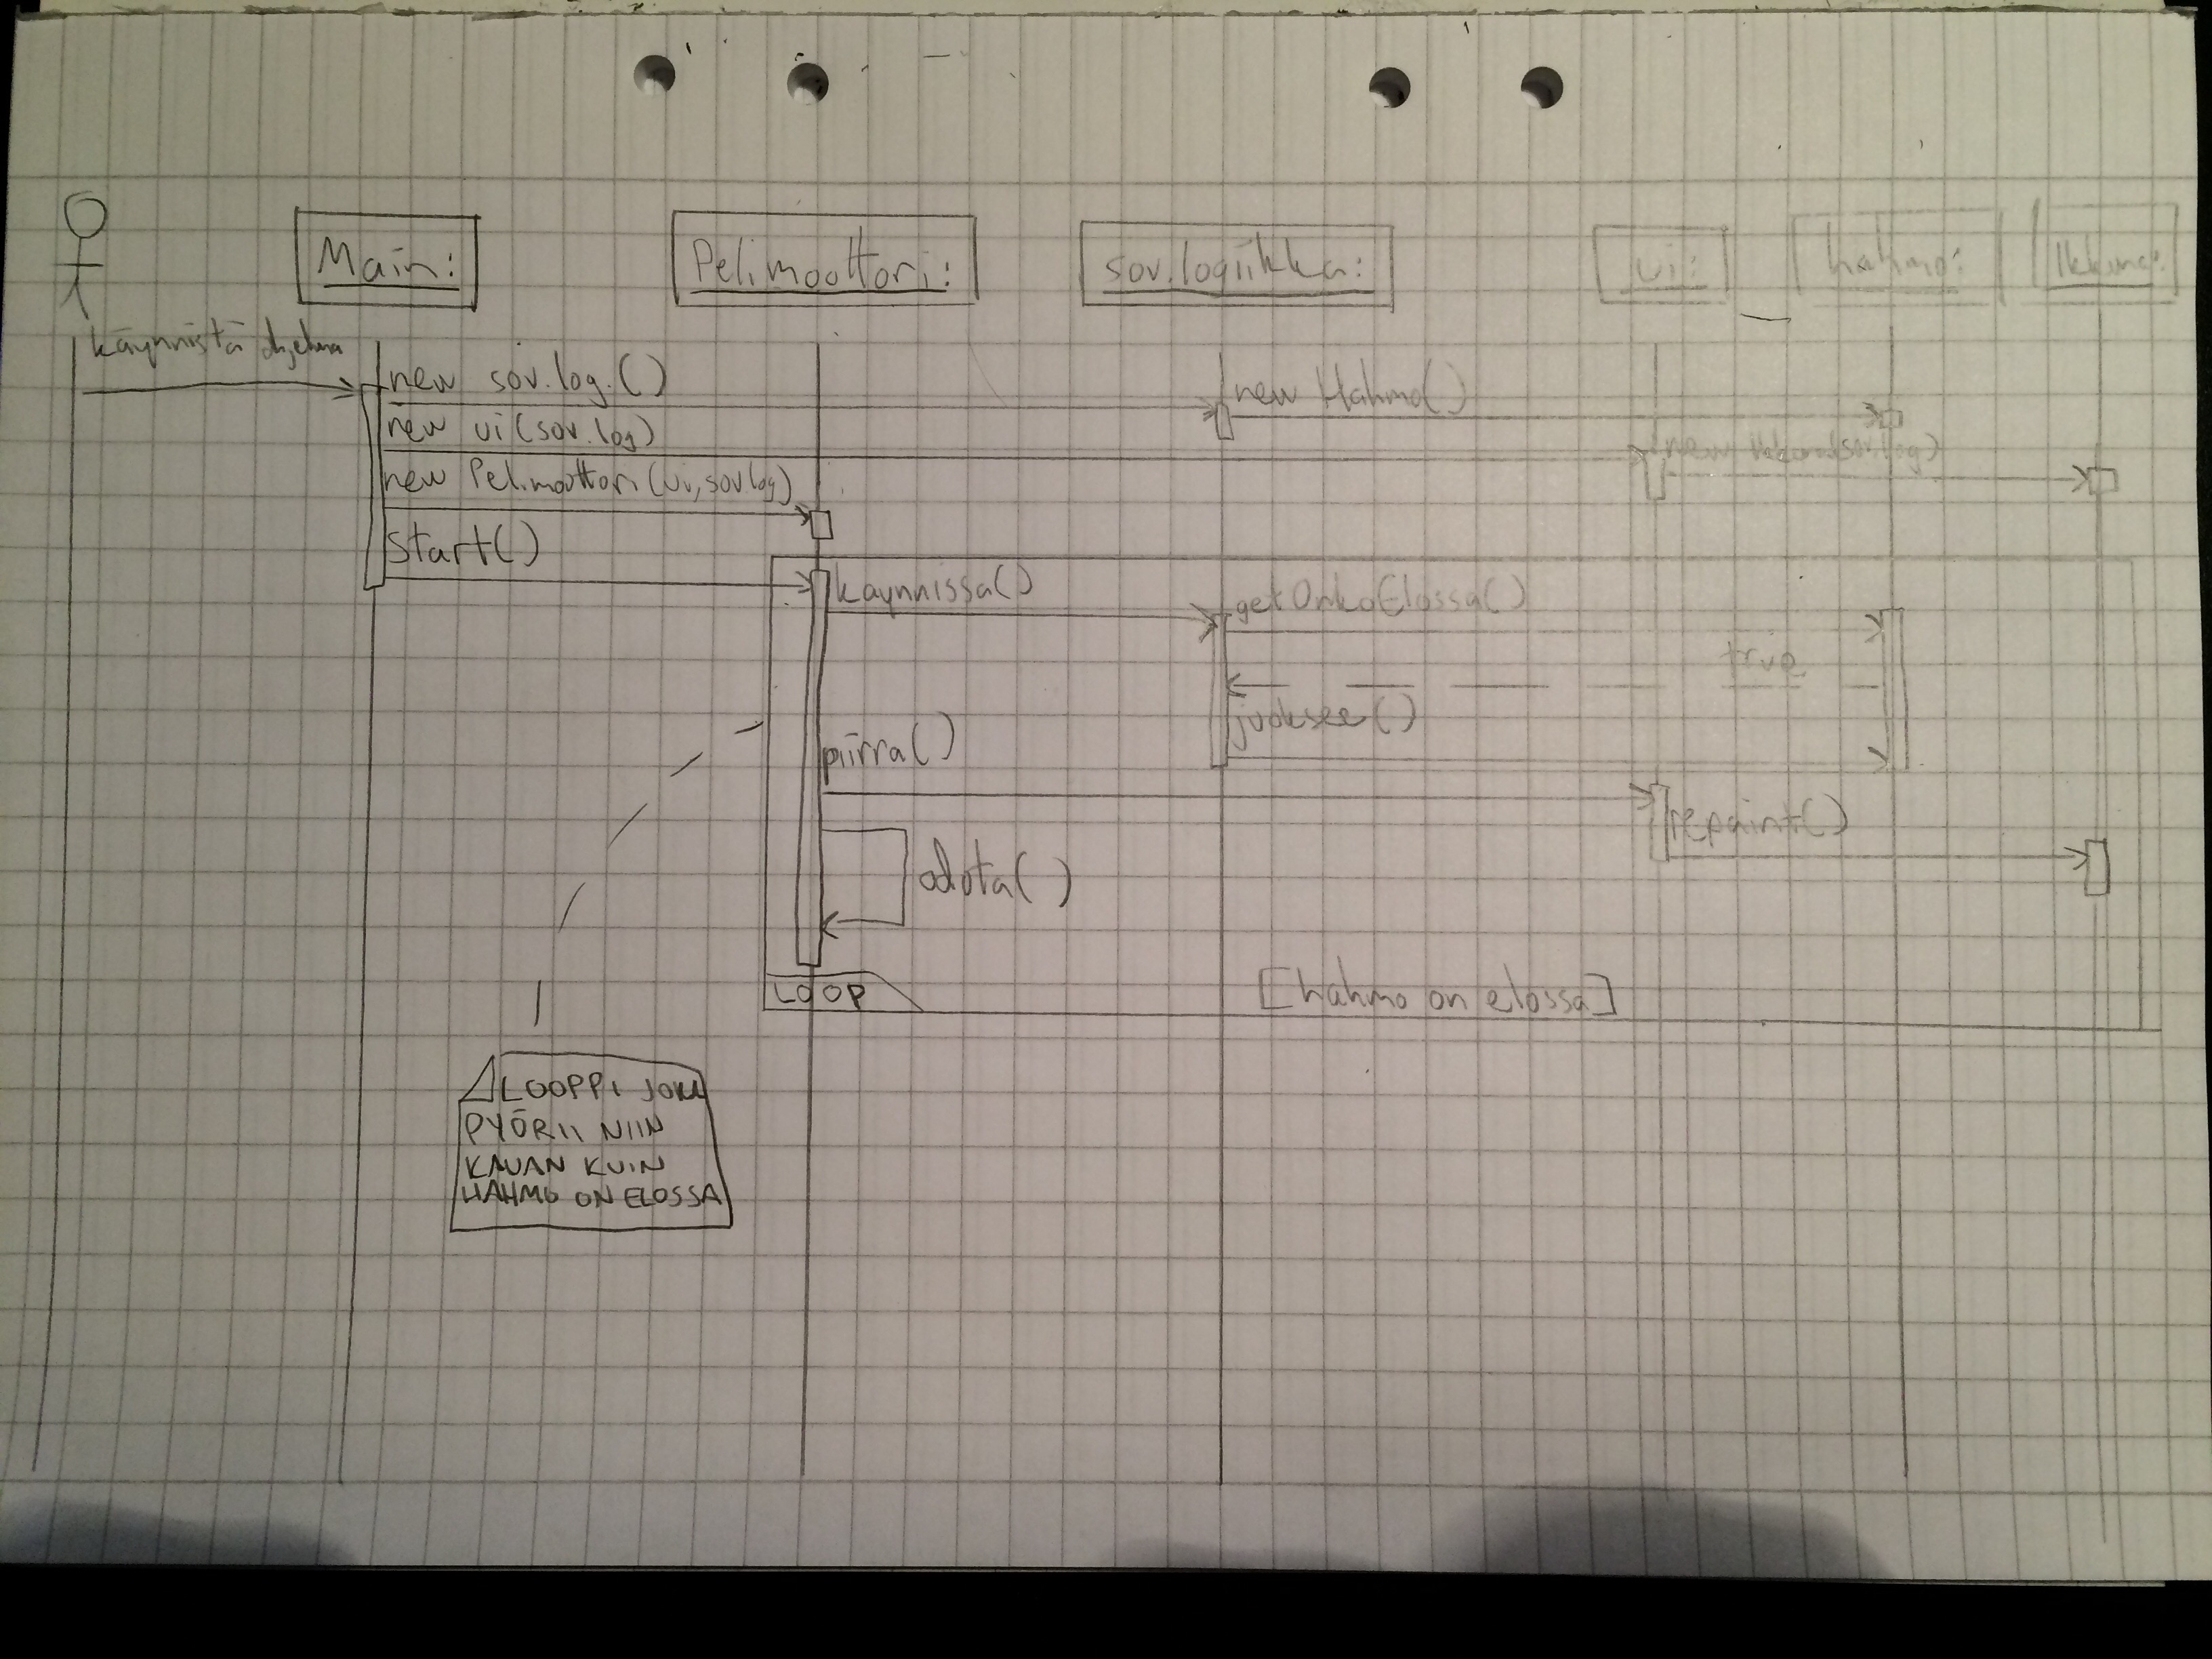 Main:
Pelimoottori:
sov.logiikka:
ui:
hahmo:
Ikkuna:
käynnistä ohjelma
new sov.log.()
new Hahmo()
new ui(sov.log)
new Ikkuna(sov.log)
new Pelimoottori(ui, sov.log)
start()
kaynnissa()
getOnkoElossa()
true
juoksee()
piirra()
repaint()
odota()
LOOP
[hahmo on elossa]
LOOPPI JOKA
PYÖRII NIIN
KAUAN KUIN
HAHMO ON ELOSSA